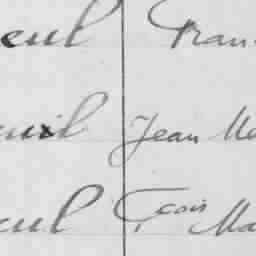 eul Fran
euil Jean Ma
eul Fcois Ma